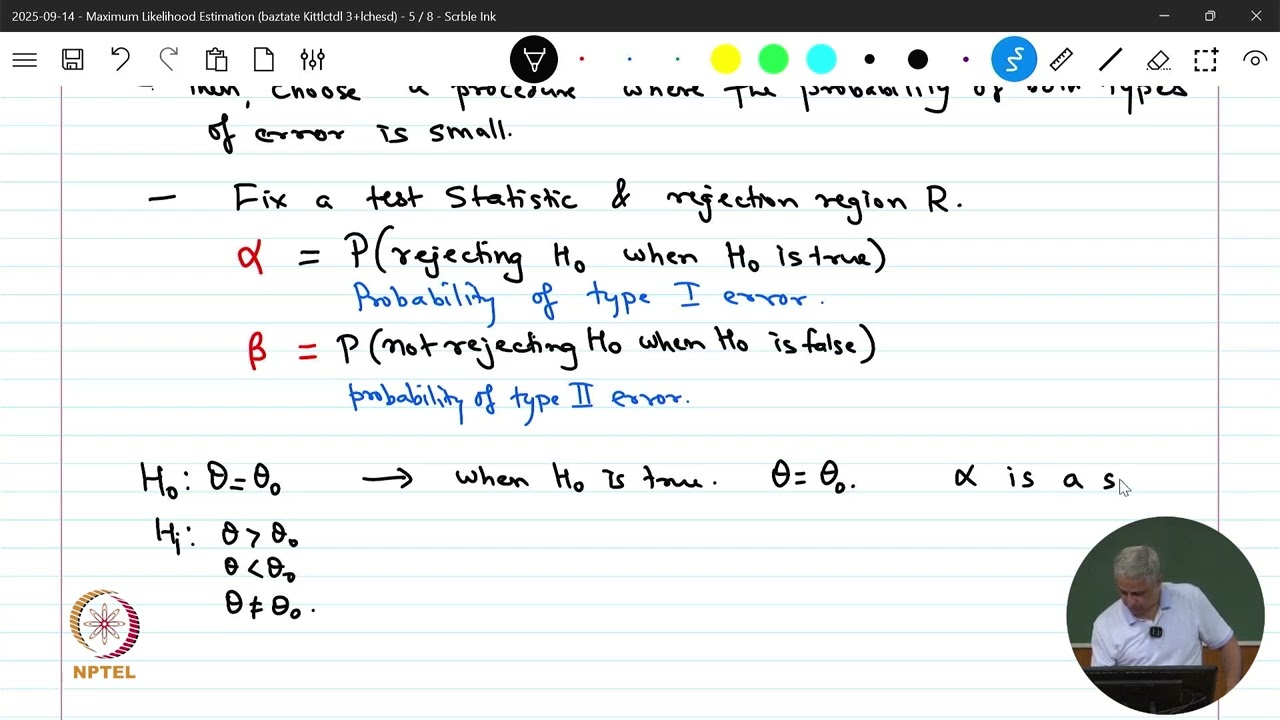 2025-09-14 - Maximum Likelihood Estimation (baztate Kittlctdl 3+lchesd) - 5 / 8 - Scrble Ink
- Then, choose a procedure where the probability of both types
of error is small.
- Fix a test statistic & rejection region R.
α = P(rejecting H₀ when H₀ is true)
Probability of type I error.
β = P(not rejecting H₀ when H₀ is false)
probability of type II error.
H₀: θ=θ₀ → when H₀ is true. θ=θ₀. α is a s
H₁: θ > θ₀
θ < θ₀
θ ≠ θ₀.
NPTEL